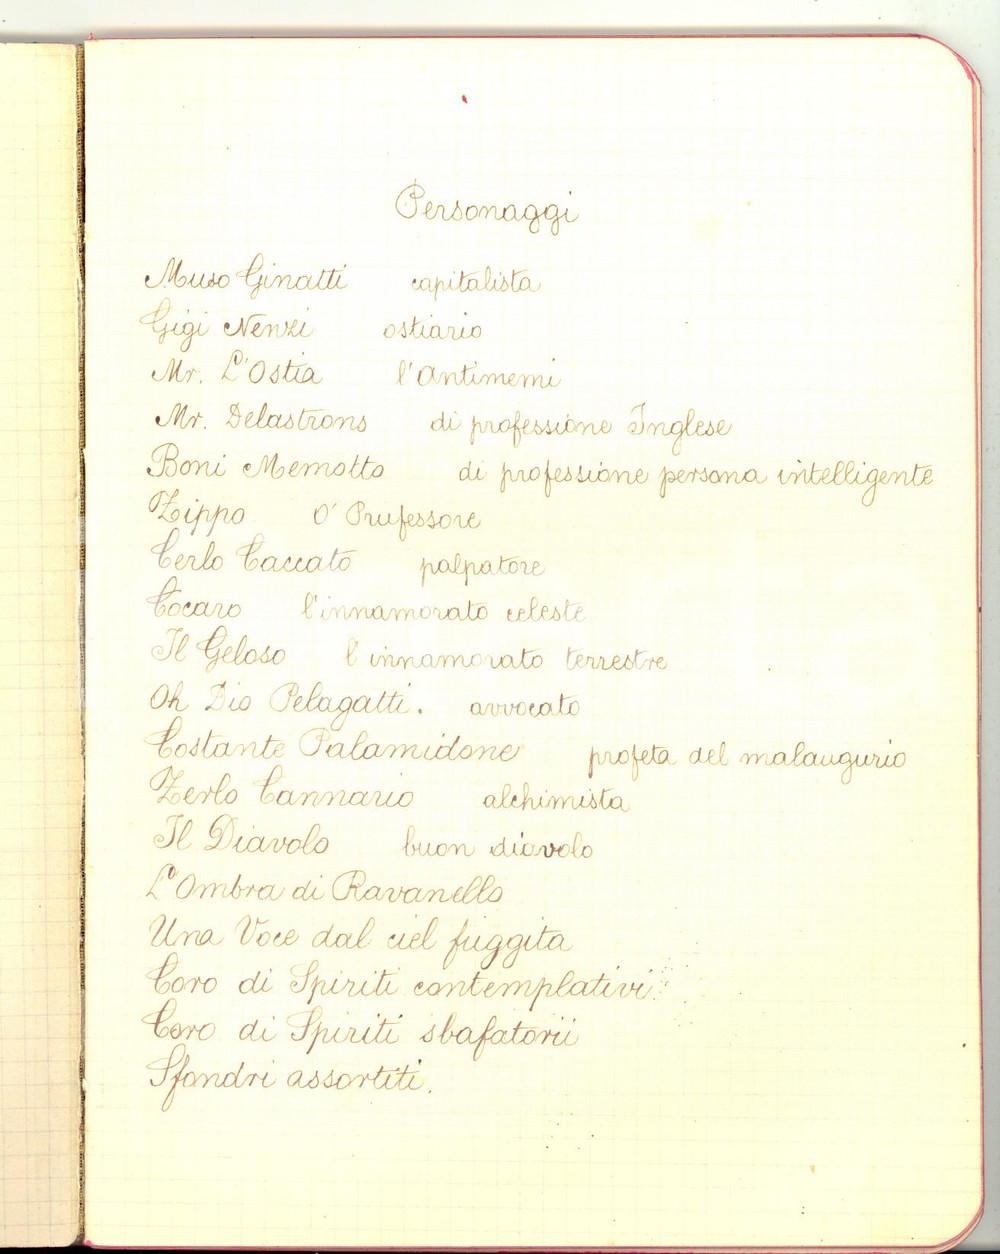 Personaggi
Muso Ginatti capitalista
Gigi Nenzi ostiario
Mr. L'Ostia l'Antimemi
Mr. Delastrons di professione Inglese
Boni Memotto di professione persona intelligente
Zippo O' Prufessore
Cerlo Caccato palpatore
Cocaro l'innamorato celeste
Il Geloso l'innamorato terrestre
Oh Dio Pelagatti. avvocato
Costante Palamidone profeta del malaugurio
Zerlo Cannario alchimista
Il Diavolo buon diavolo
L'Ombra di Ravanello
Una Voce dal ciel fuggita
Coro di Spiriti contemplativi
Coro di Spiriti sbafatorii
Sfondri assortiti.